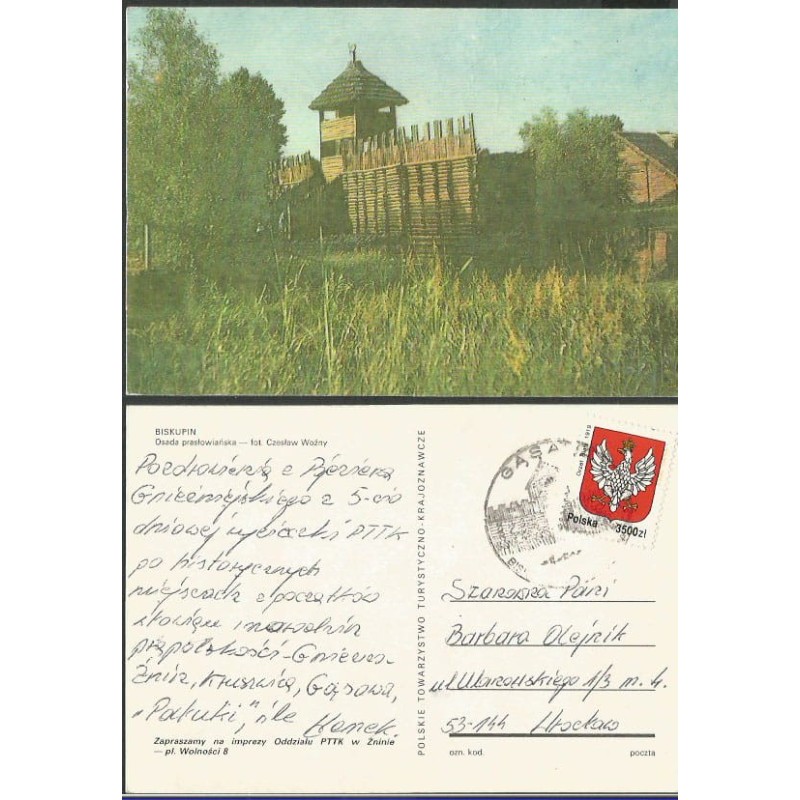 BISKUPIN
Osada prasłowiańska — fot. Czesław Woźny
Pozdrowienia z
Gnieźnieńskiego z 5-cio
dniowej wycieczki PTTK
po historycznych
miejscach z początków
-
Żnin, Kruszwica, Gąsawa,
"Pałuki",
Zapraszamy na imprezy Oddziału PTTK w Żninie
— pl. Wolności 8
POLSKIE TOWARZYSTWO TURYSTYCZNO-KRAJOZNAWCZE
GĄSA
Orzeł Biały 1919
Polska 3500zł
Szanowna Pani
Barbara Olejnik
ul. 1/3 m. 4.
53-144 Wrocław
ozn. kod. poczta